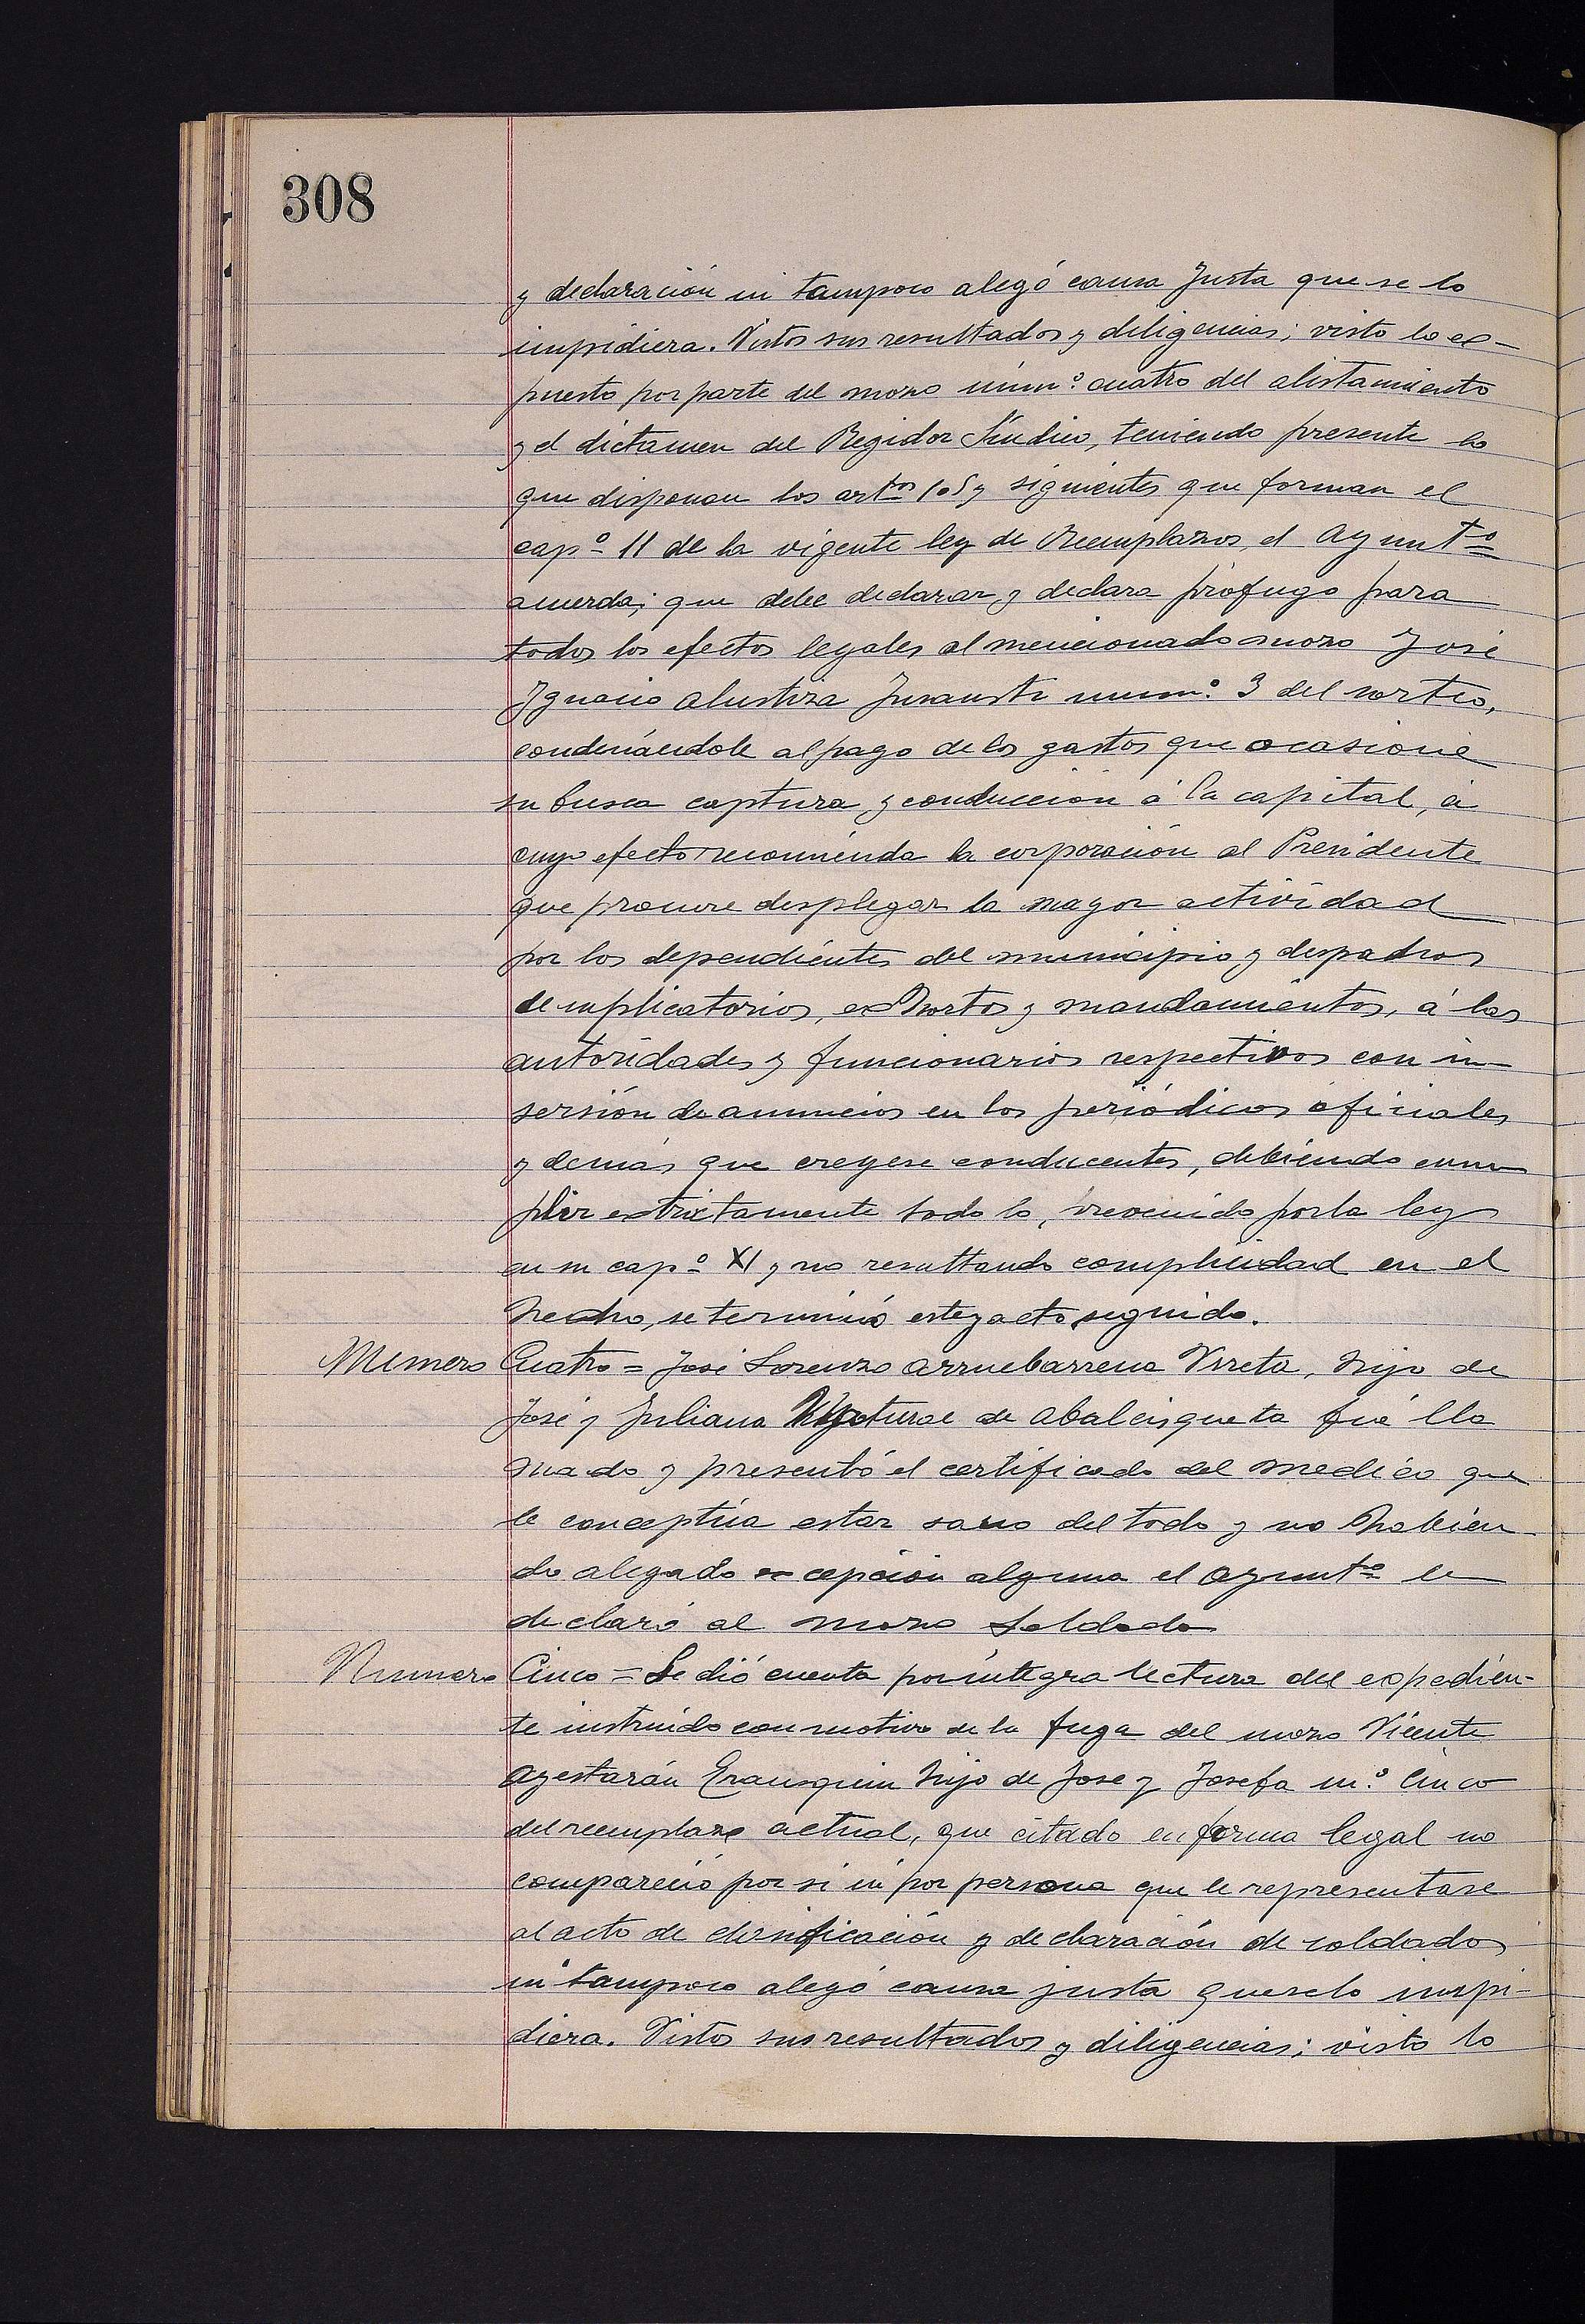 308
y declaración ni tampoco alegó causa Justa que se lo
impidiera. Vistos sus resultados y diligencias; visto lo ex-
puesto por parte del mozo núm.º cuatro del alistamiento
y el dictamen del Regidor Síndico, teniendo presente lo
que disponen los artos 105 y siguientes que forman el
capº 11 de la vigente ley de Reemplazos, el Ayuntº
acuerda; que debe declarar y declara prófugo para
todos los efectos legales al mencionado mozo José
Ygnacio Alustiza Jurausti numº 3 del sorteo,
condenándole al pago de los gastos que ocasione
su busca captura y conducción á la capital, á
cuyo efecto recomienda la corporación al Presidente
que procure desplegar la mayor actividad
por los dependientes del municipio y despachos
de suplicatorios, exhortos y mandamientos, á las
autoridades y funcionarios respectivos con in-
serсión de anuncios en los periódicos oficiales
y demás que creyese conducentes, debiendo cum
plir extrictamente todo lo, prevenido por la ley
en su capº XI y no resultando complicidad en el
hecho, se terminó este y acto seguido.
Numero Cuatro = José Lorenzo Arruebarrena Virreta, hijo de
José y Juliana Natural de Abalcisqueta fué lla
mado y presentó el certificado del medico que
le conceptúa estar sano del todo y no habien
do alegado excepción alguna el Ayuntº le
declaró al mozo Soldado
Numero Cinco = Se dió cuenta por integra lectura del expedien-
te instruido con motivo de la fuga del mozo Vicente
Ayestarán Erausquin hijo de Jose y Josefa n.º Cinco
del reemplazo actual, que citado en forma legal no
compareció por si ni por persona que le representase
al acto de clasificación y declaración de soldados
ni tampoco alegó causa justa que se lo impi-
diera. Vistos sus resultados y diligencias; visto lo